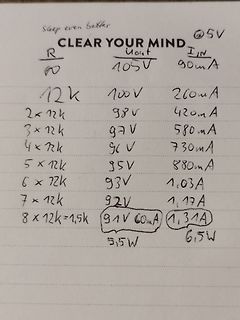 sleep even better
@5V
CLEAR YOUR MIND
R Uout IIN
∞ 105V 90mA
12k 100V 260mA
2 × 12k 98V 420mA
3 × 12k 97V 580mA
4 × 12k 96V 730mA
5 × 12k 95V 880mA
6 × 12k 93V 1,03A
7 × 12k 92V 1,17A
8 × 12k = 1,5k 91V 60mA 1,31A
5,5W 6,5W